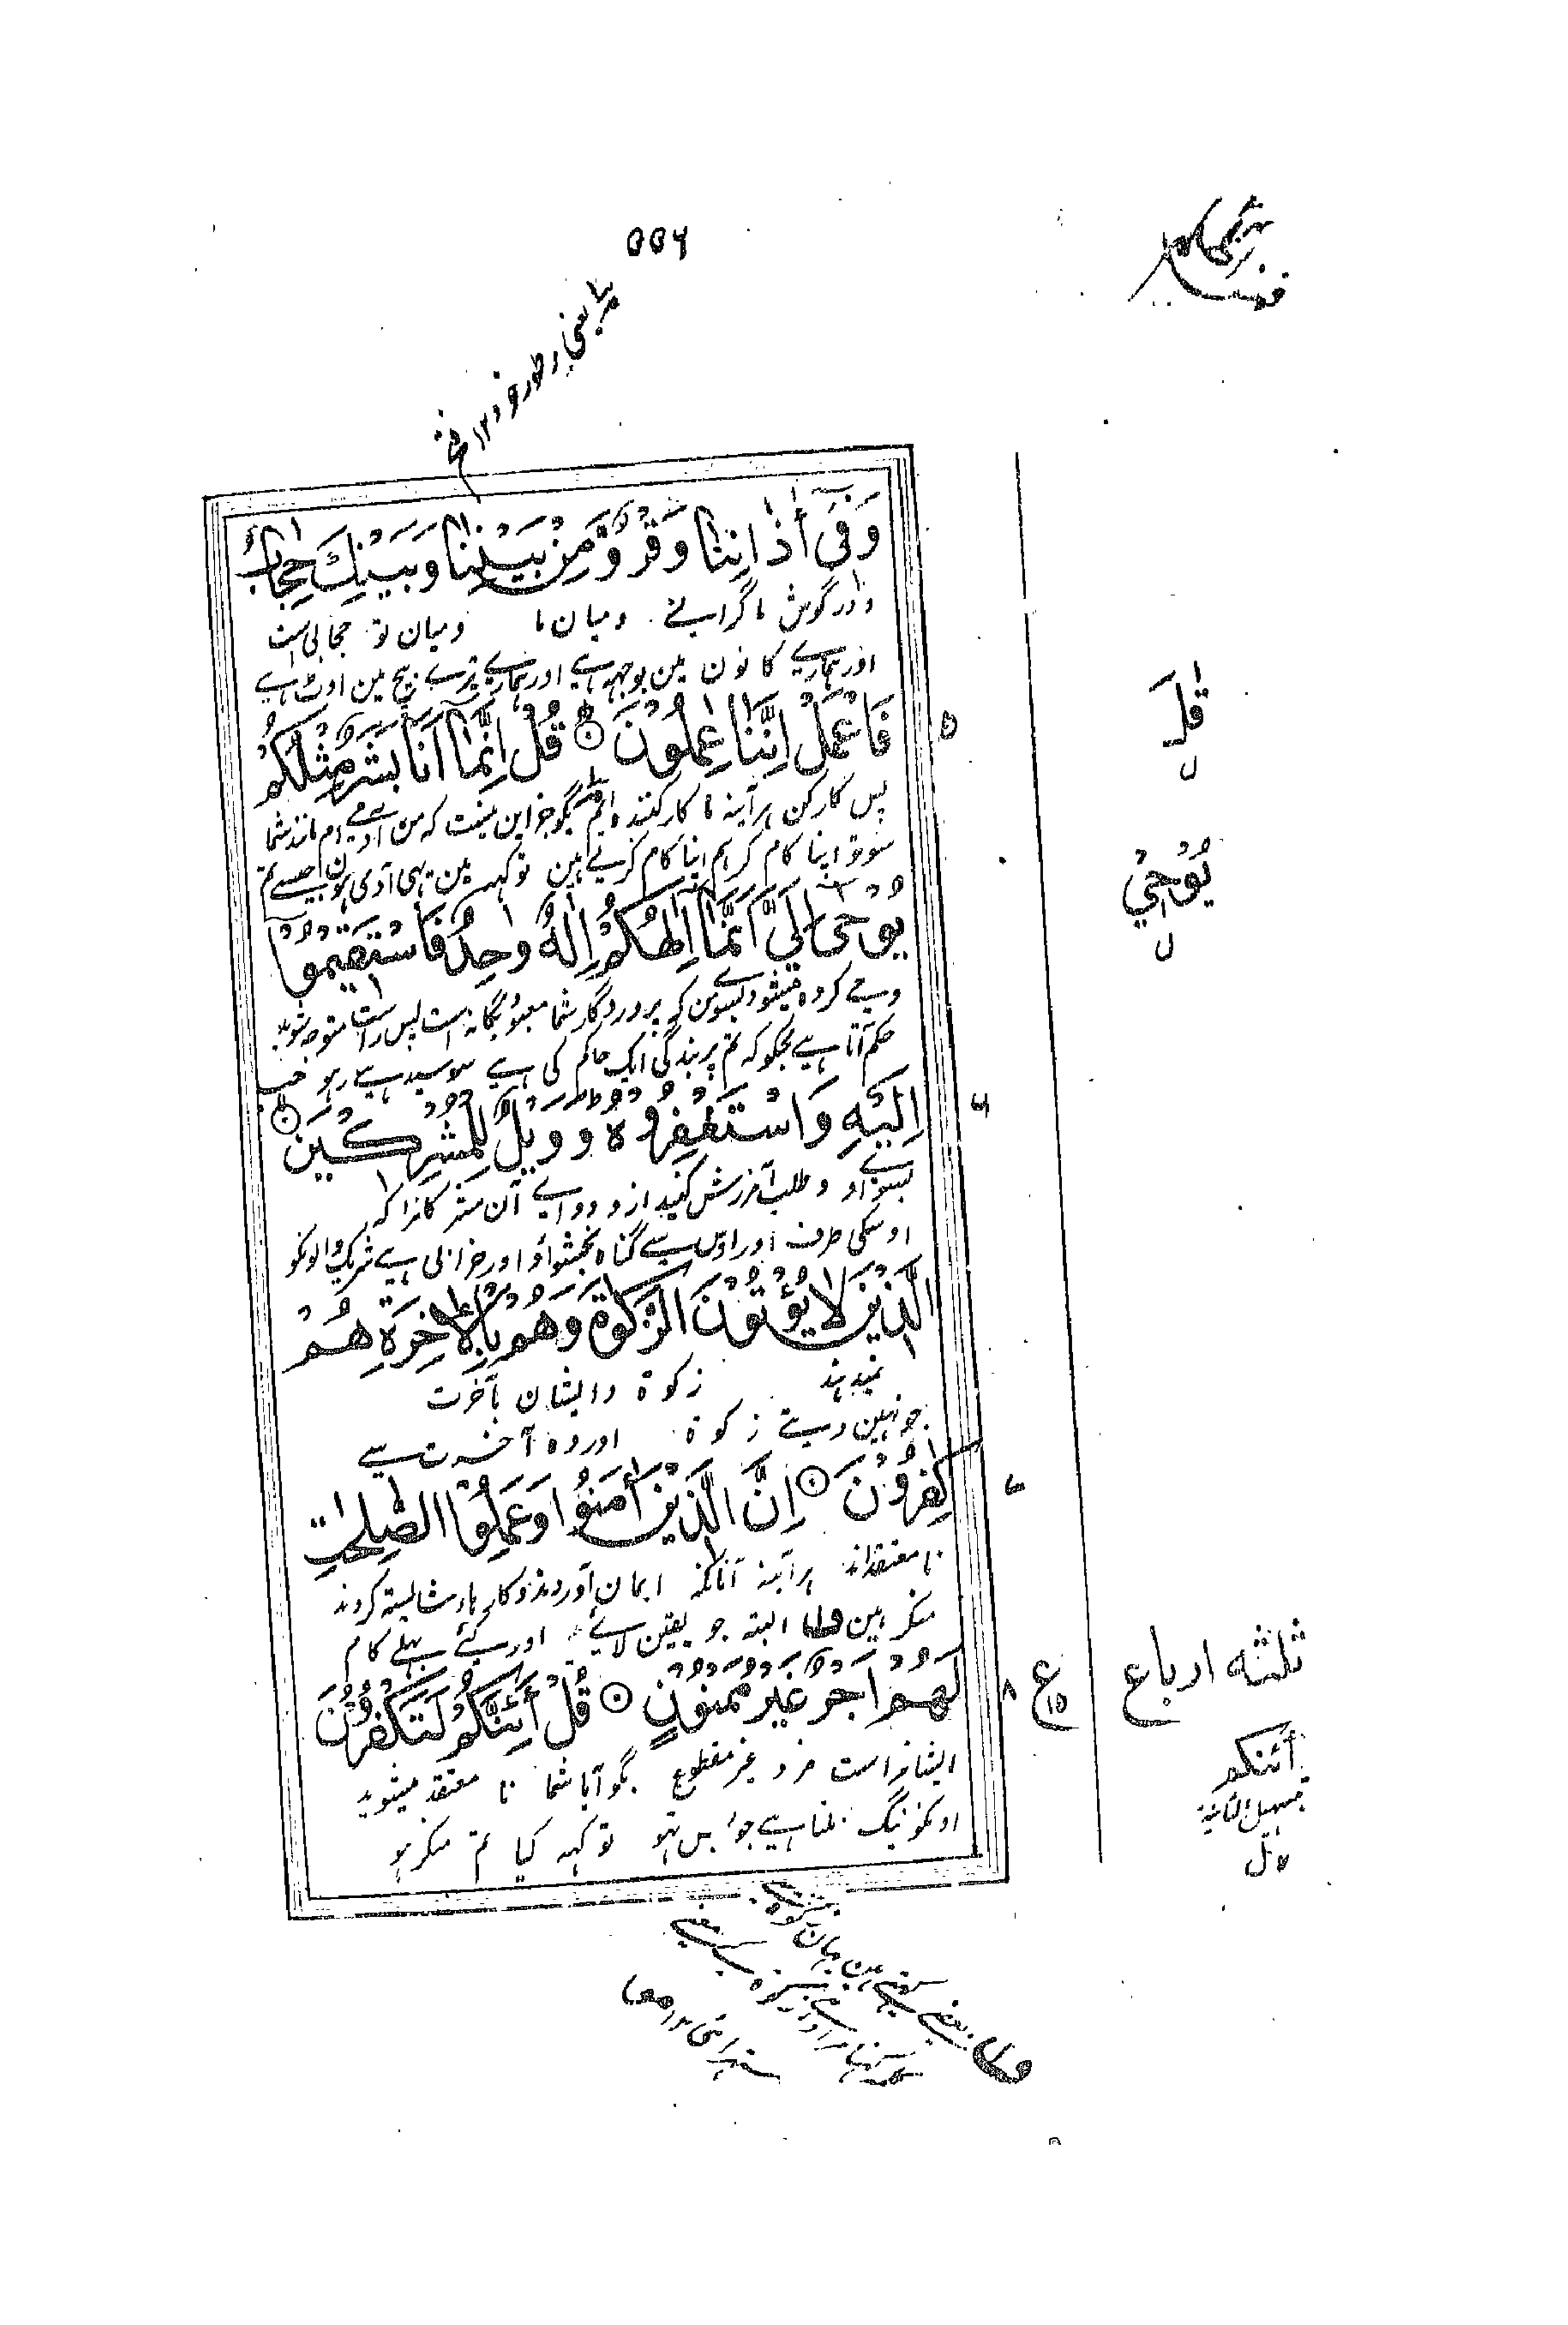 ۵۵۶
یعنی بر طور خود ۱۲ فتح
وَفِیْ أٰذَانِنَا وَقْرٌ وَّمِنْۢ بَیْنِنَا وَبَیْنِكَ حِجَابٌ
و در گوش ما گرانی ست و میان ما و میان تو حجابی است
اور ہمارے کانون مین بوجھ ہے اور ہمارے تیرے بیچ مین اوٹ ہے
فَاعْمَلْ اِنَّنَا عٰمِلُوْنَ ۝ قُلْ اِنَّمَا اَنَا بَشَرٌ مِّثْلُكُمْ
۵
قُلَ
ل
پس کار کن ہر آینہ ما کار کنندہ ایم بگو جز این نیست که من آدمی ام مانند شما
سو تو اپنا کام کر ہم اپنا کام کرتے ہین تو کہہ مین بہی آدمی ہون جیسے تم
یُوْحٰی اِلَیَّ اَنَّمَا اِلٰهُكُمْ اِلٰهٌ وَّاحِدٌ فَاسْتَقِیْمُوْا
یُوْحِیْ
ل
وحی کردہ میشود بسوی من که پروردگار شما معبود یگانہ است پس راست متوجہ شوید
حکم آتا ہے مجکو کہ تم پر بندگی ایک حاکم کی ہے سو سیدہے رہو
اِلَیْهِ وَاسْتَغْفِرُوْهُ وَوَیْلٌ لِّلْمُشْرِكِیْنَ ۝
۶
بسوی او و طلب آمرزش کنید ازو و وای آن مشرکانرا که
اوسکی طرف اور اوس سے گناہ بخشواؤ اور خرابی ہے شریک والونکو
الَّذِیْنَ لَا یُؤْتُوْنَ الزَّكٰوةَ وَهُمْ بِالْاٰخِرَةِ هُمْ
نمیدہند زکوة و ایشان بآخرت
جو نہین دیتے زکوة اور وہ آخرت سے
كٰفِرُوْنَ ۝ اِنَّ الَّذِیْنَ اٰمَنُوْا وَعَمِلُوا الصّٰلِحٰتِ
۷
نا معتقدانند ہر آینہ آنانکه ایمان آوردند و کارہای شایستہ کردند
منکر ہین ف۱ البتہ جو یقین لائے اور کئے بہلے کام
لَهُمْ اَجْرٌ غَیْرُ مَمْنُوْنٍ ۝ قُلْ اَئِنَّكُمْ لَتَكْفُرُوْنَ
۸
ع ۱۵
ثلثه ارباع
ایشانراست مزد غیر مقطوع بگو آیا شما نا معتقد میشوید
اونکو نیگ ملنا ہے جو بس نہو تو کہہ کیا تم منکر ہو
أئنكم